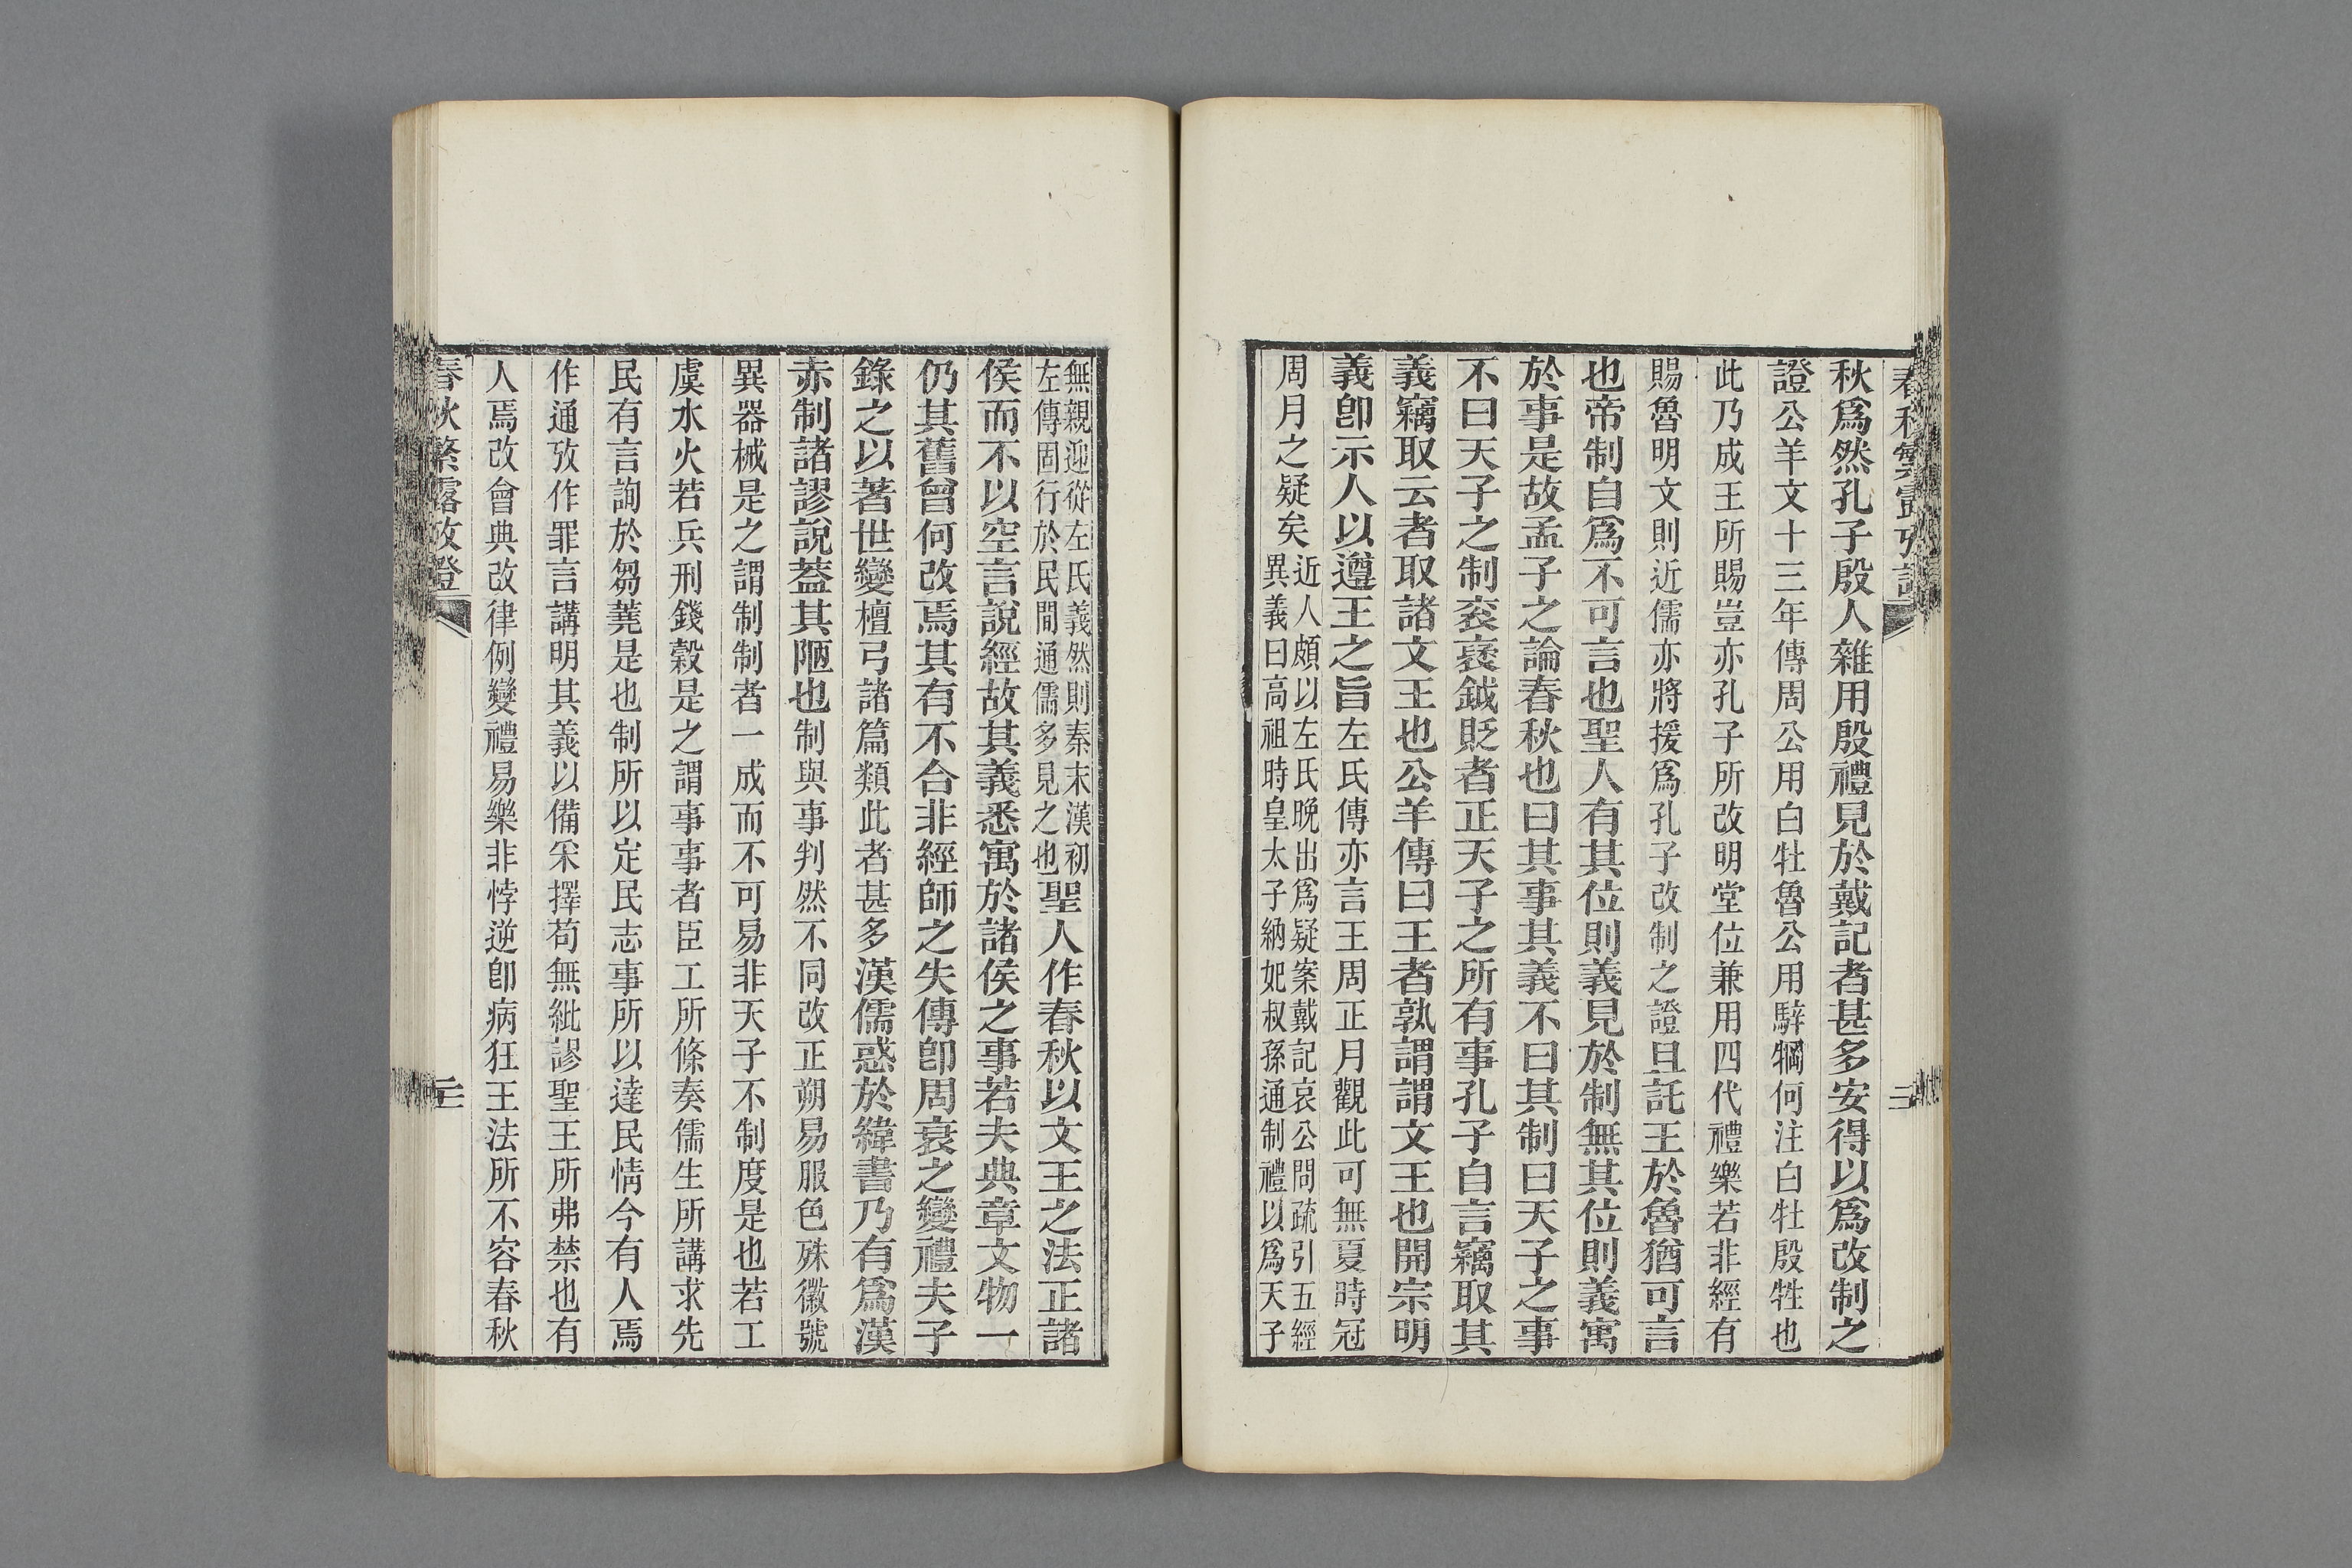 秋爲然孔子殷人雜用殷禮見於戴記者甚多安得以爲改制之
證公羊文十三年傳周公用白牡魯公用騂犅何注白牡殷牲也
此乃成王所賜豈亦孔子所改明堂位兼用四代禮樂若非經有
賜魯明文則近儒亦將援爲孔子改制之證且託王於魯猶可言
也帝制自爲不可言也聖人有其位則義見於制無其位則義寓
於事是故孟子之論春秋也曰其事其義不曰其制曰天子之事
不曰天子之制袞褒鉞貶者正天子之所有事孔子自言竊取其
義竊取云者取諸文王也公羊傳曰王者孰謂謂文王也開宗明
義卽示人以遵王之旨左氏傳亦言王周正月觀此可無夏時冠
周月之疑矣近人頗以左氏晚出爲疑案戴記哀公問疏引五經
異義曰高祖時皇太子納妃叔孫通制禮以爲天子
無親迎從左氏義然則秦末漢初
左傳固行於民間通儒多見之也聖人作春秋以文王之法正諸
侯而不以空言說經故其義悉寓於諸侯之事若夫典章文物一
仍其舊曾何改焉其有不合非經師之失傳卽周衰之變禮夫子
錄之以著世變檀弓諸篇類此者甚多漢儒惑於緯書乃有爲漢
赤制諸謬說葢其陋也制與事判然不同改正朔易服色殊徽號
異器械是之謂制制者一成而不可易非天子不制度是也若工
虞水火若兵刑錢穀是之謂事事者臣工所條奏儒生所講求先
民有言詢於芻蕘是也制所以定民志事所以達民情今有人焉
作通攷作罪言講明其義以備采擇苟無紕謬聖王所弗禁也有
人焉改會典改律例變禮易樂非悖逆卽病狂王法所不容春秋
春秋繁露攷證
二